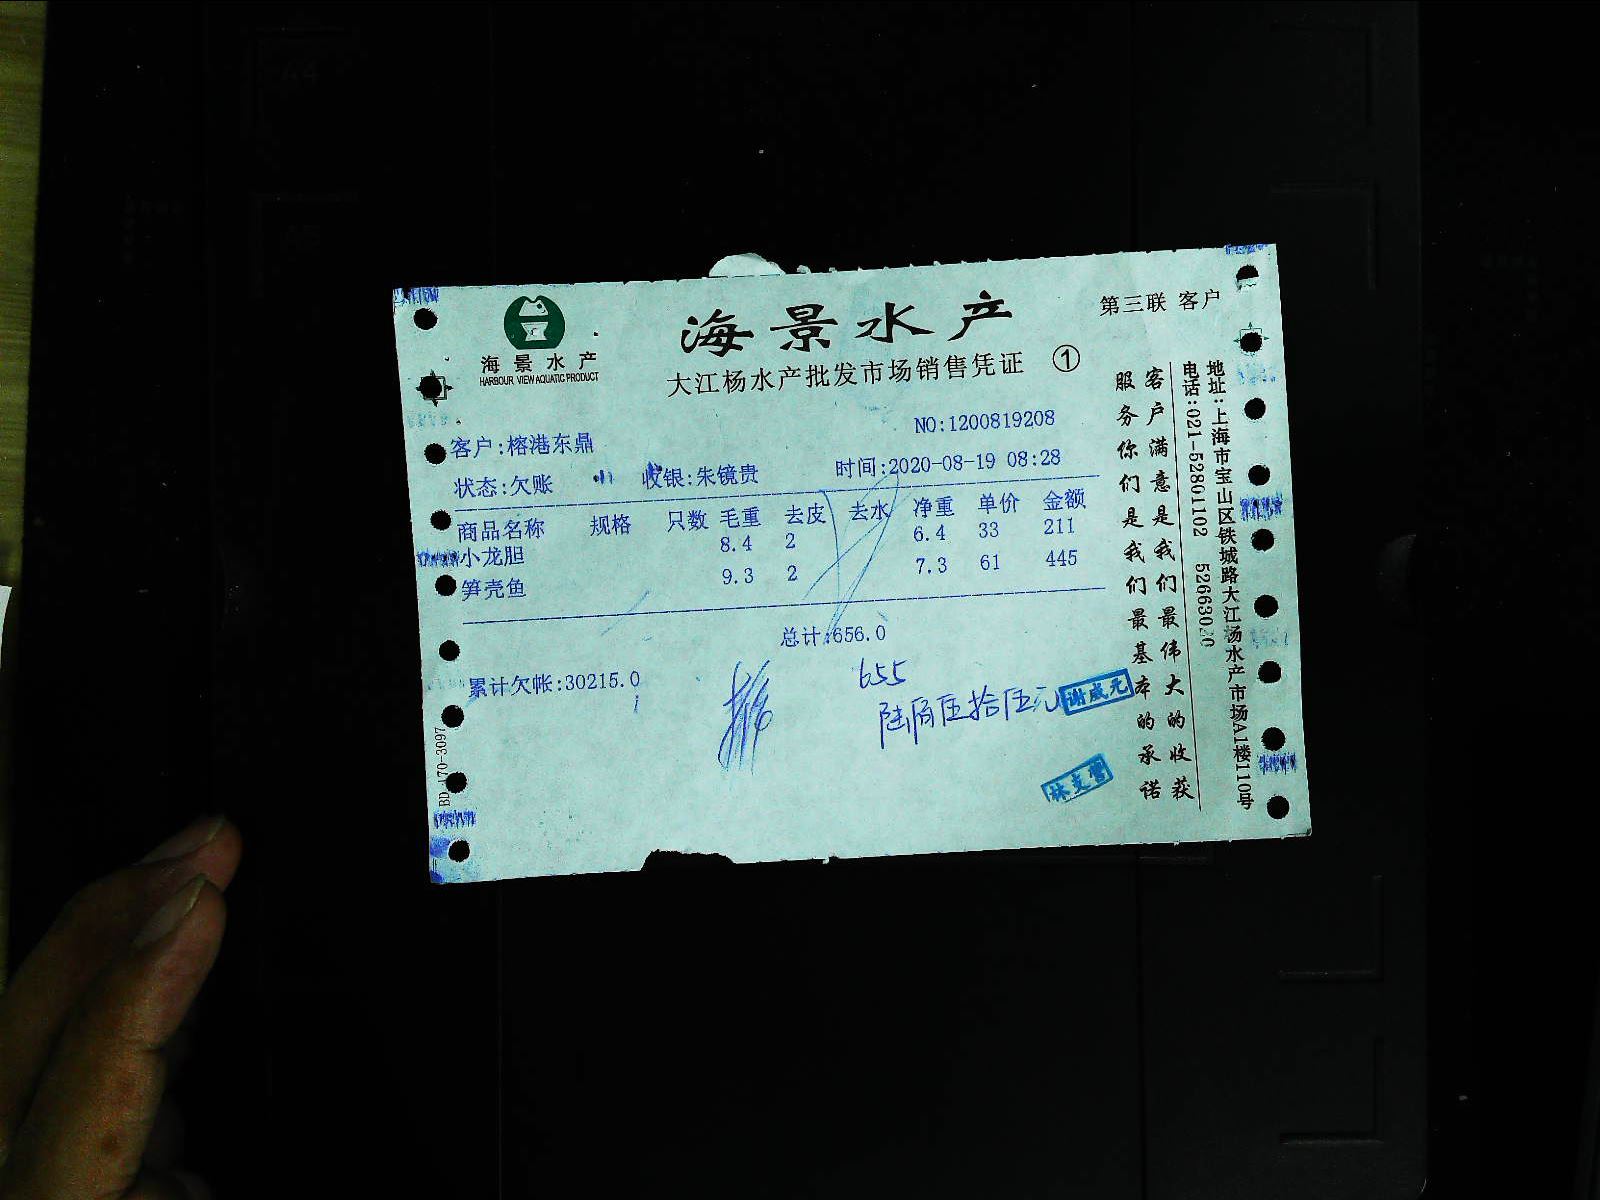 海景水产
第三联 客户
海景水产
HARBOUR VIEW AQUATIC PRODUCT
大江杨水产批发市场销售凭证 ①
NO:1200819208
客户:榕港东鼎
状态:欠账 收银:朱镜贵 时间:2020-08-19 08:28
商品名称 规格 只数 毛重 去皮 去水 净重 单价 金额
小龙胆 8.4 2 6.4 33 211
笋壳鱼 9.3 2 7.3 61 445
总计:656.0
累计欠帐:30215.0
655
陆佰伍拾伍元
谢咸元
客户满意是我们最伟大的收获
服务你们是我们最基本的承诺
地址:上海市宝山区铁城路大江杨水产市场A1楼110号
电话:021-52801102 52663020
BD 170-3097